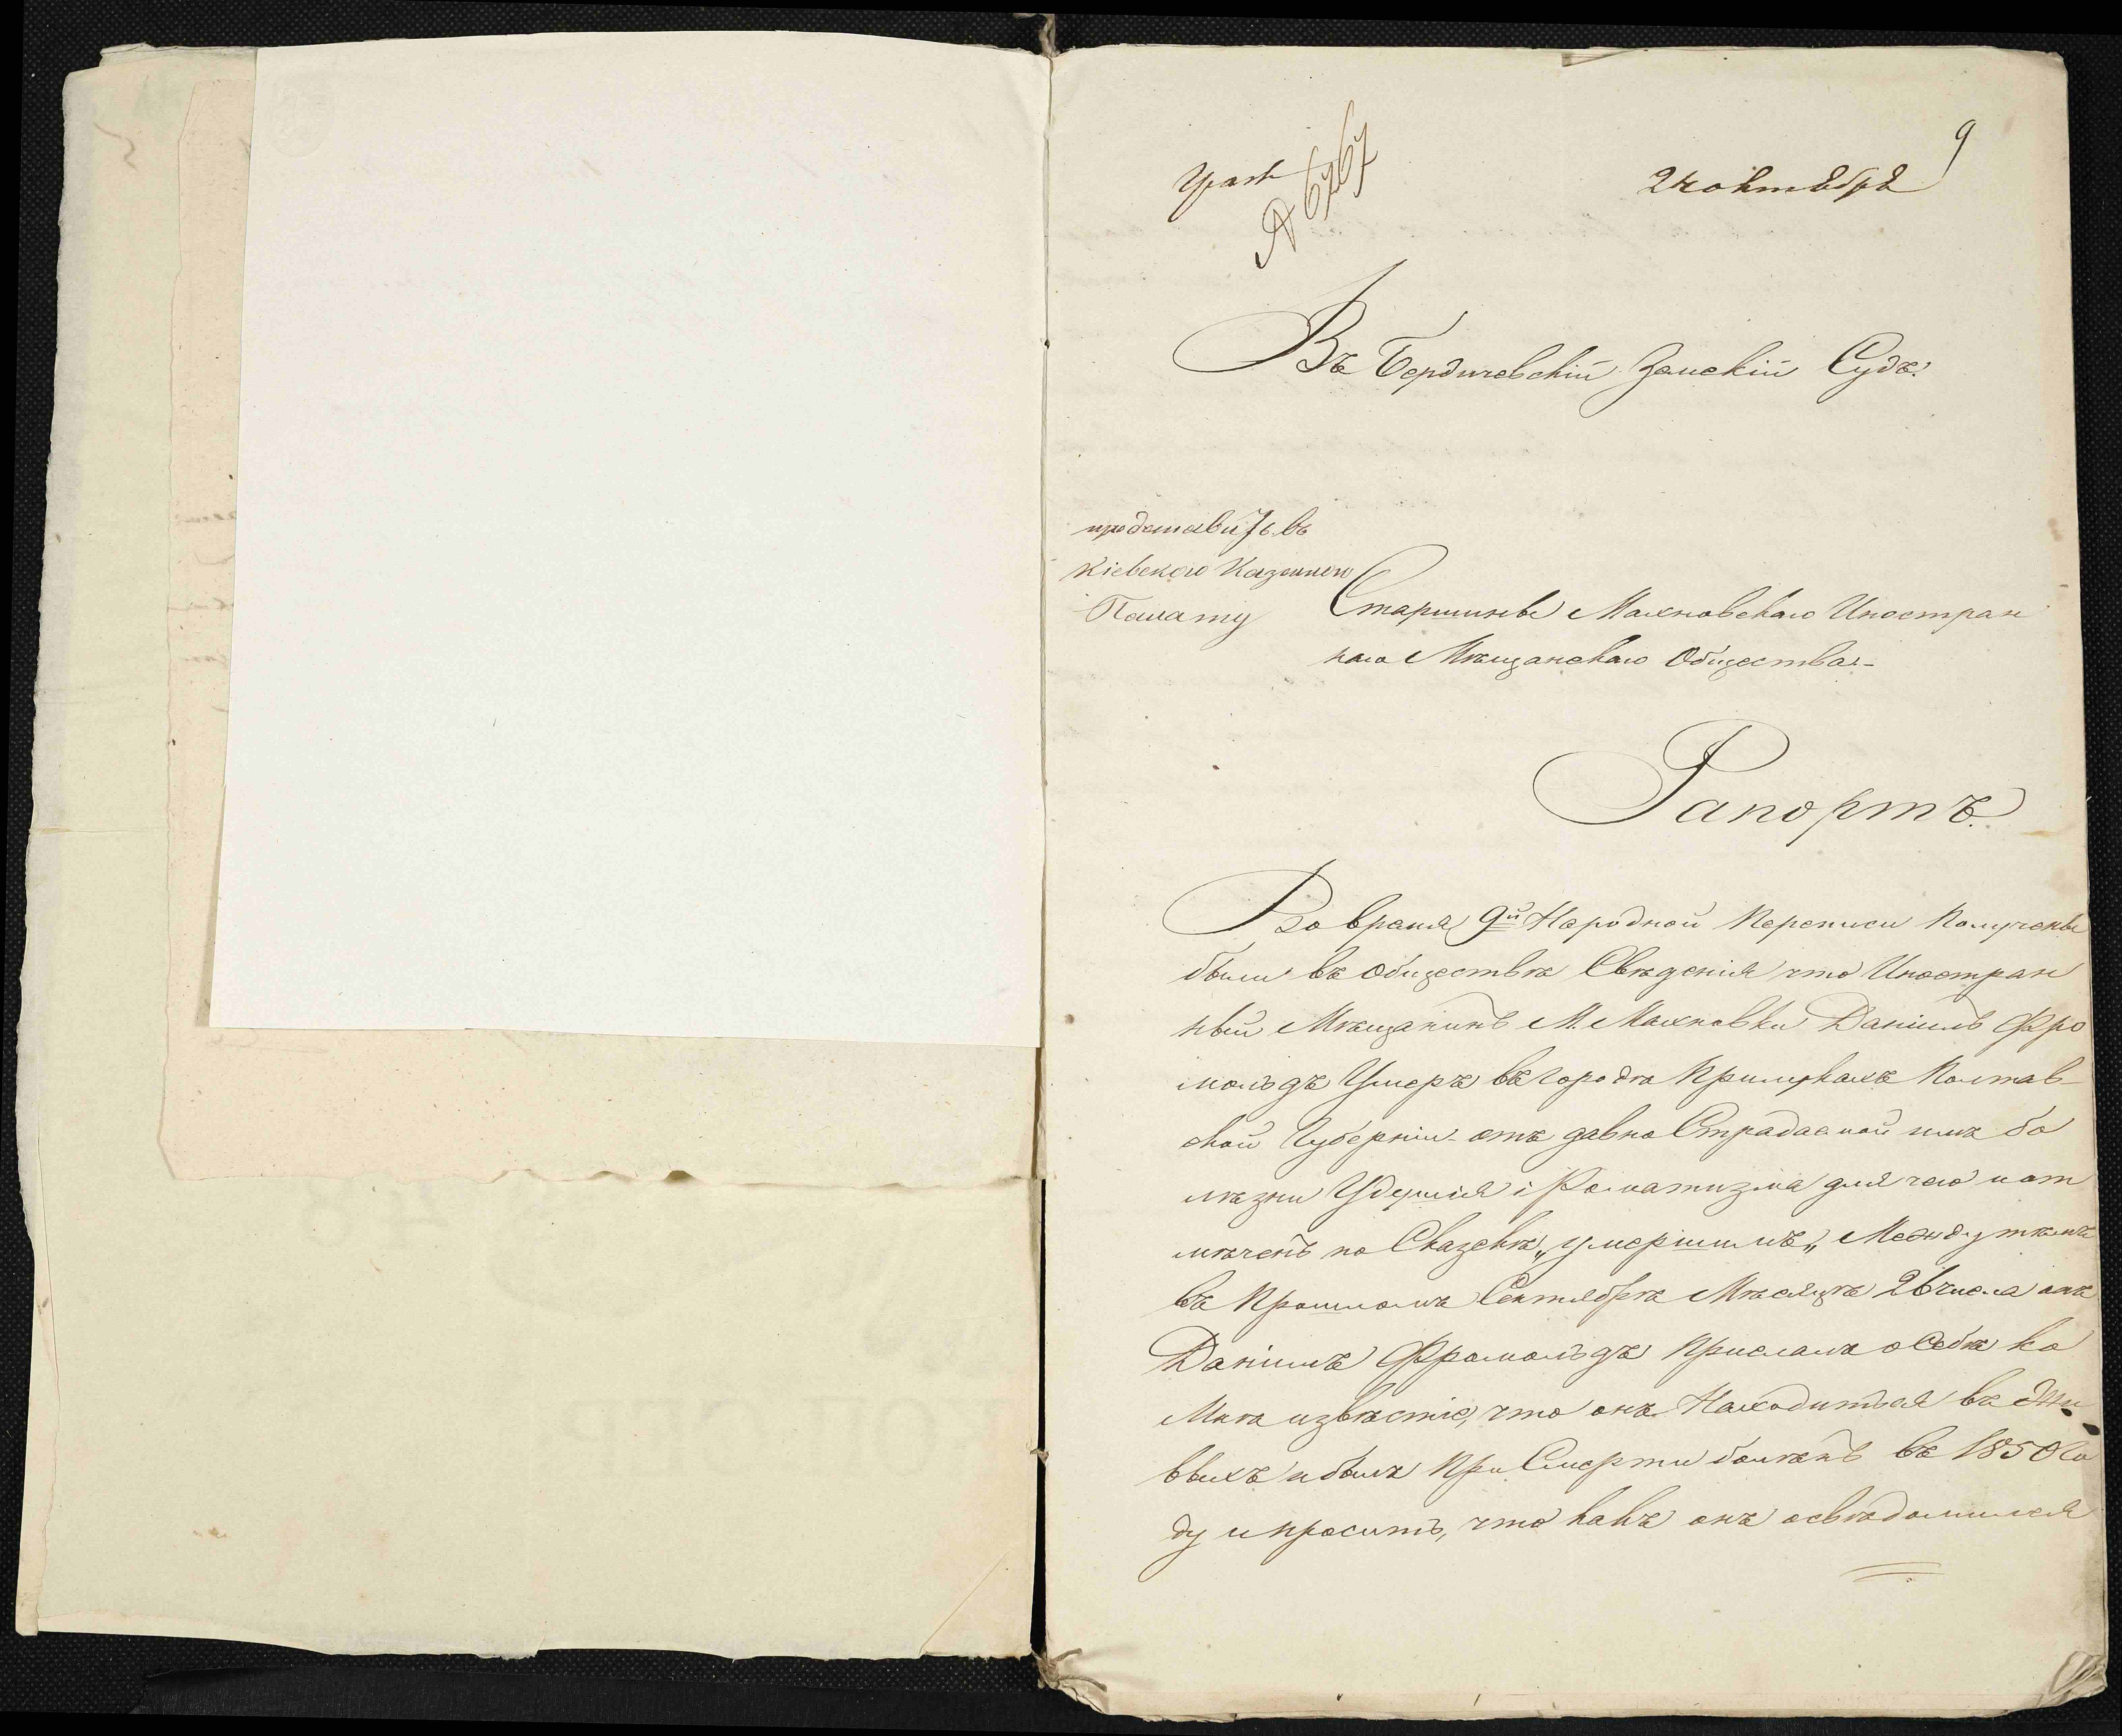 9
24 октября
№ 6767
Въ Бердичевскій Земскій Судъ.
представить въ
Кіевскою Казенною
Палату
Старшины Махновскаго Иностран
наго Мѣщанскаго Общества.-
Рапортъ.
Во время 9й Народной Переписи Получены
были въ Обществѣ Свѣденія что Иностран
ный Мѣщанинъ М. Махновки Даніилъ Фро
мольдъ Умеръ въ городѣ Прилукахъ Полтав-
ской Губерніи отъ давно Страдаемой имъ бо
лѣзни Удушія і Ревматизма для чего и от
мѣченъ по Сказкѣ „умершимъ„ Между тѣмъ
въ Прошломъ Сентябрѣ Мѣсяцѣ 26 числа онъ
Даніилъ Фромольдъ Прислалъ о Себѣ ко
Мнѣ извѣстіе, что онъ Находится въ Жи
выхъ и былъ При Смерти боленъ въ 1850 го
ду и проситъ, что какъ онъ освѣдомился